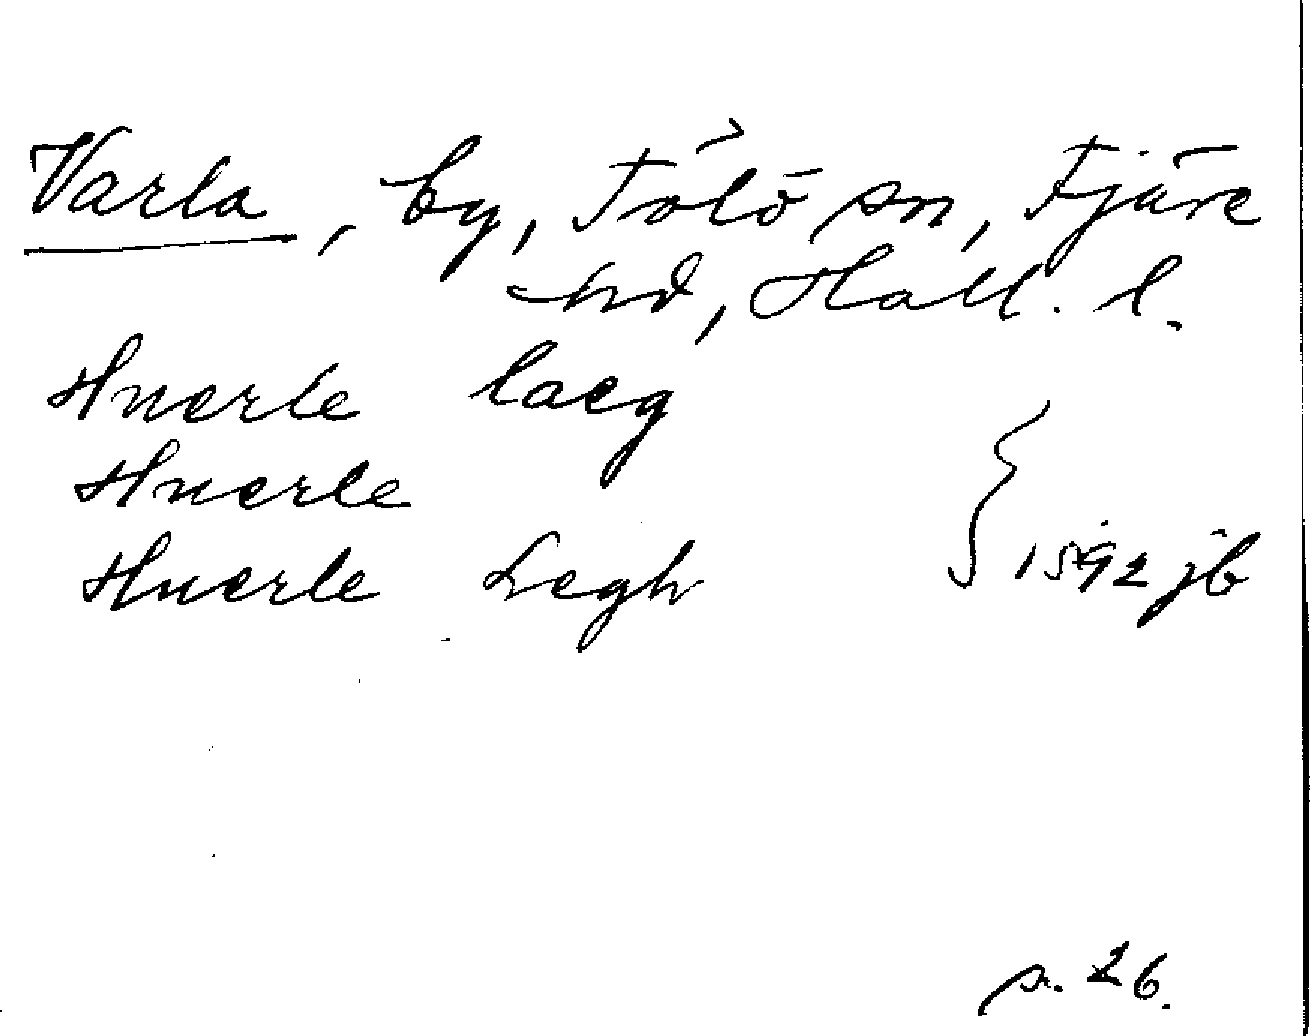 Varla, by, Tölö sn, Fjäre
hd, Hall. l.
Huerle laeg
Huerle
Huerle Legh
} 1592 jb
s. 26.